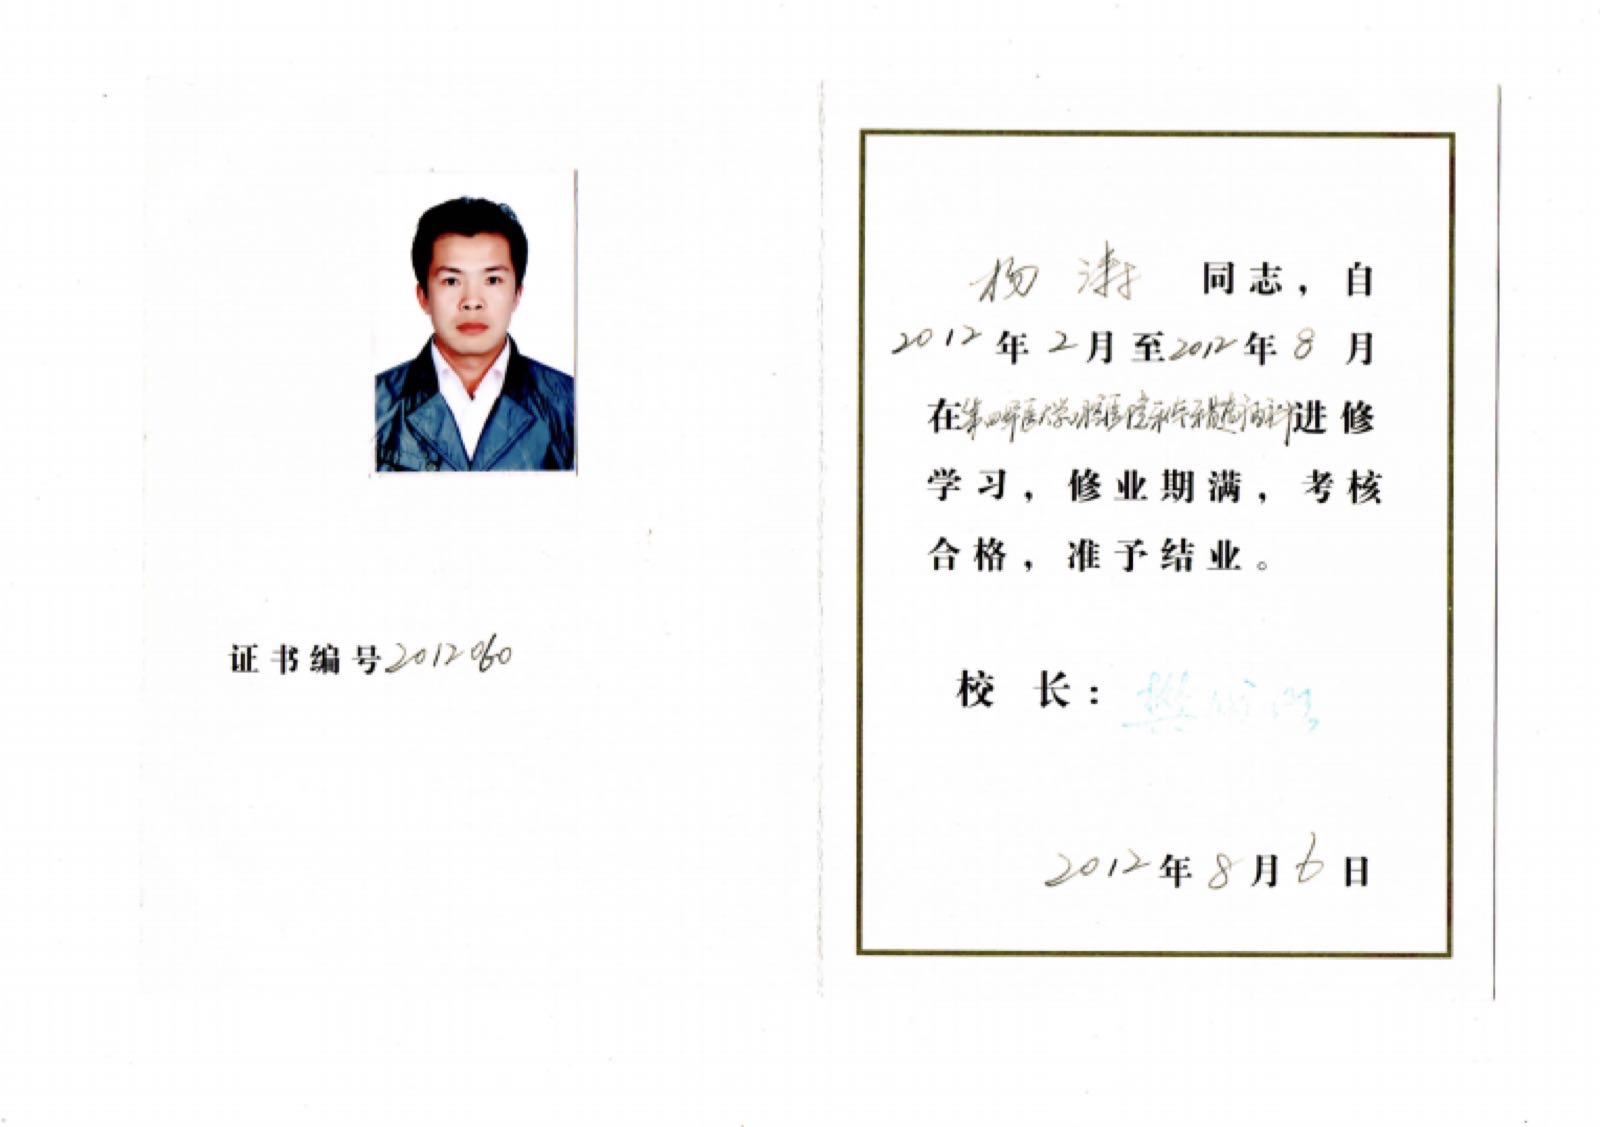 证书编号2012060
杨涛 同志，自
2012年2月至2012年8月
在第四军医大学口腔医院牙体牙髓病科进修
学习，修业期满，考核
合格，准予结业。
校 长：
2012年8月6日